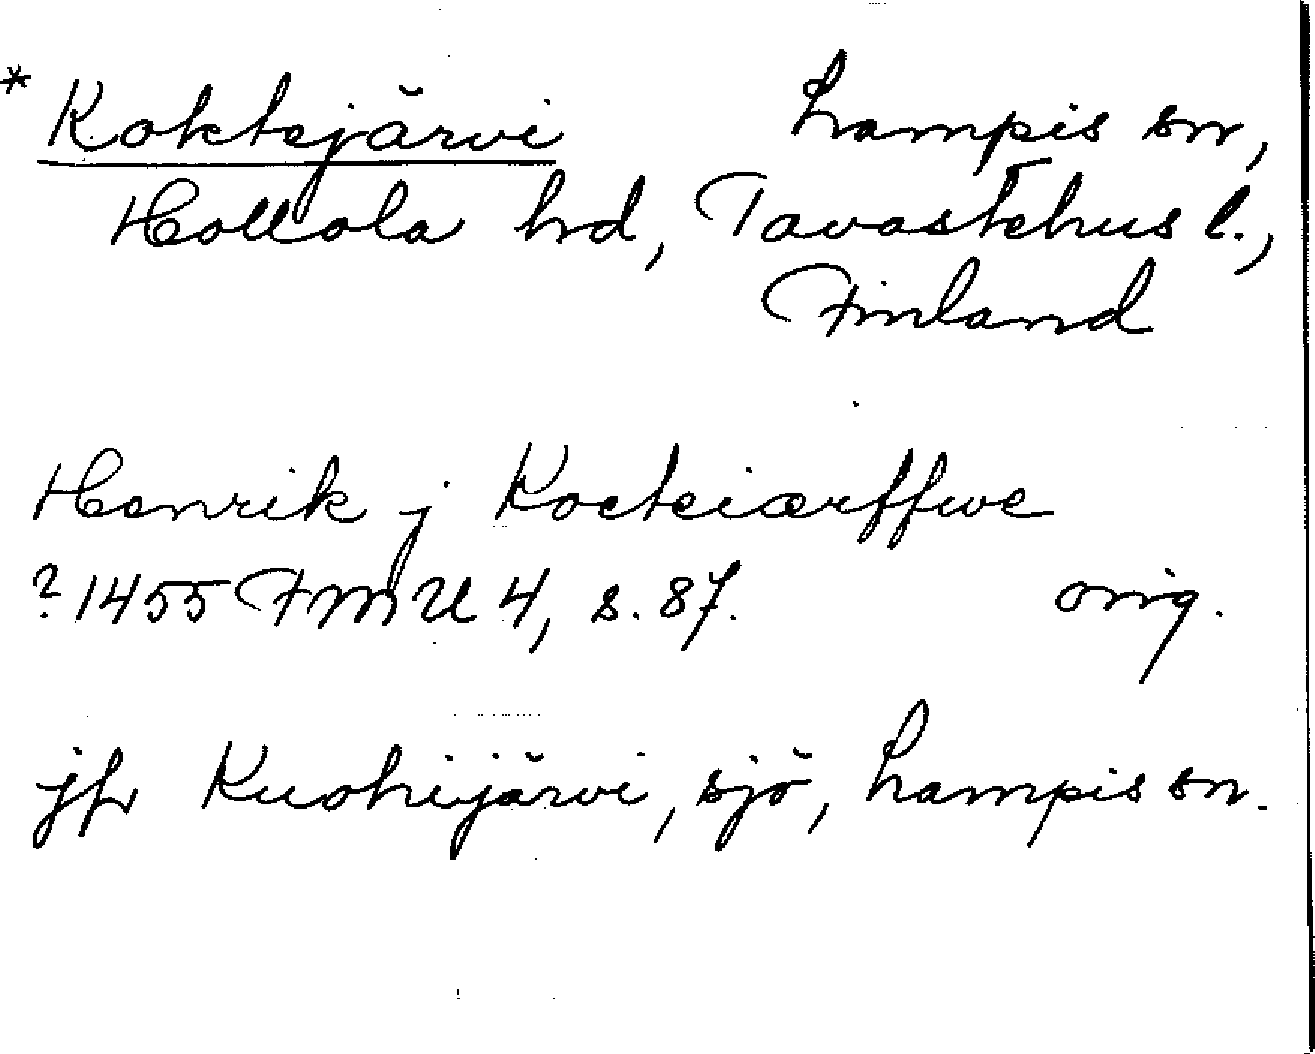 * Koktejärvi Lampis sn,
Hollola hd, Tavastehus l.,
Finland
Henrik j Kocteiærffwe
? 1455 FMU 4, s. 87. orig.
jfr Kuohijärvi, sjö, Lampis sn.